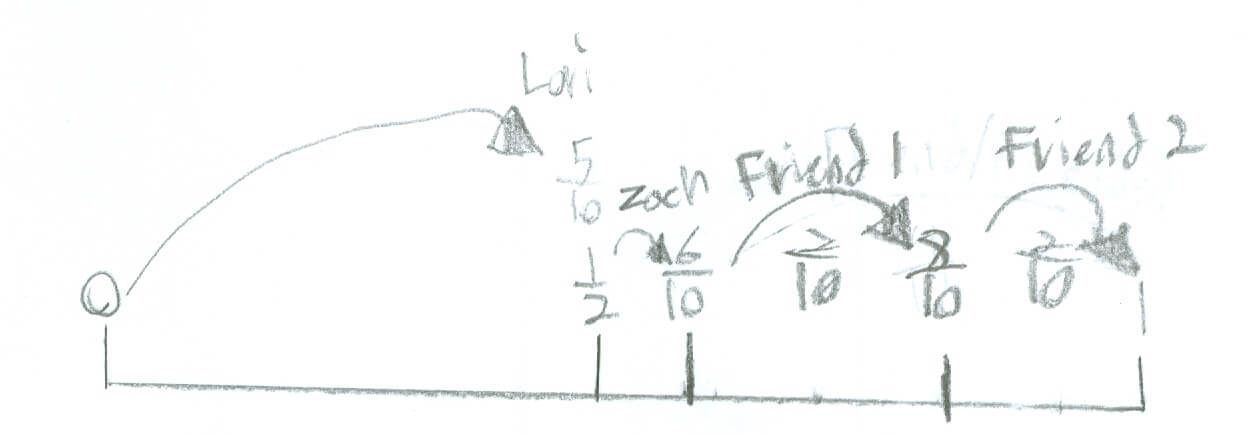 Lori
5/10
Zach
Friend 1
Friend 2
0
1/2
6/10
2/10
8/10
2/10
1